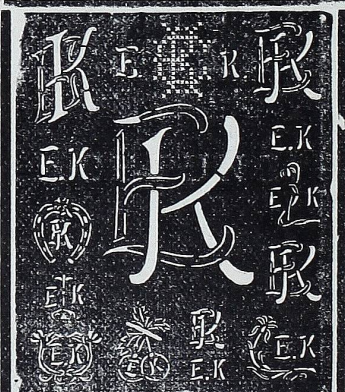 EK
E K
EK
E.K
EK
E.K
E K
EK
EK
E K
EK
EK
EK
E.K
E.K